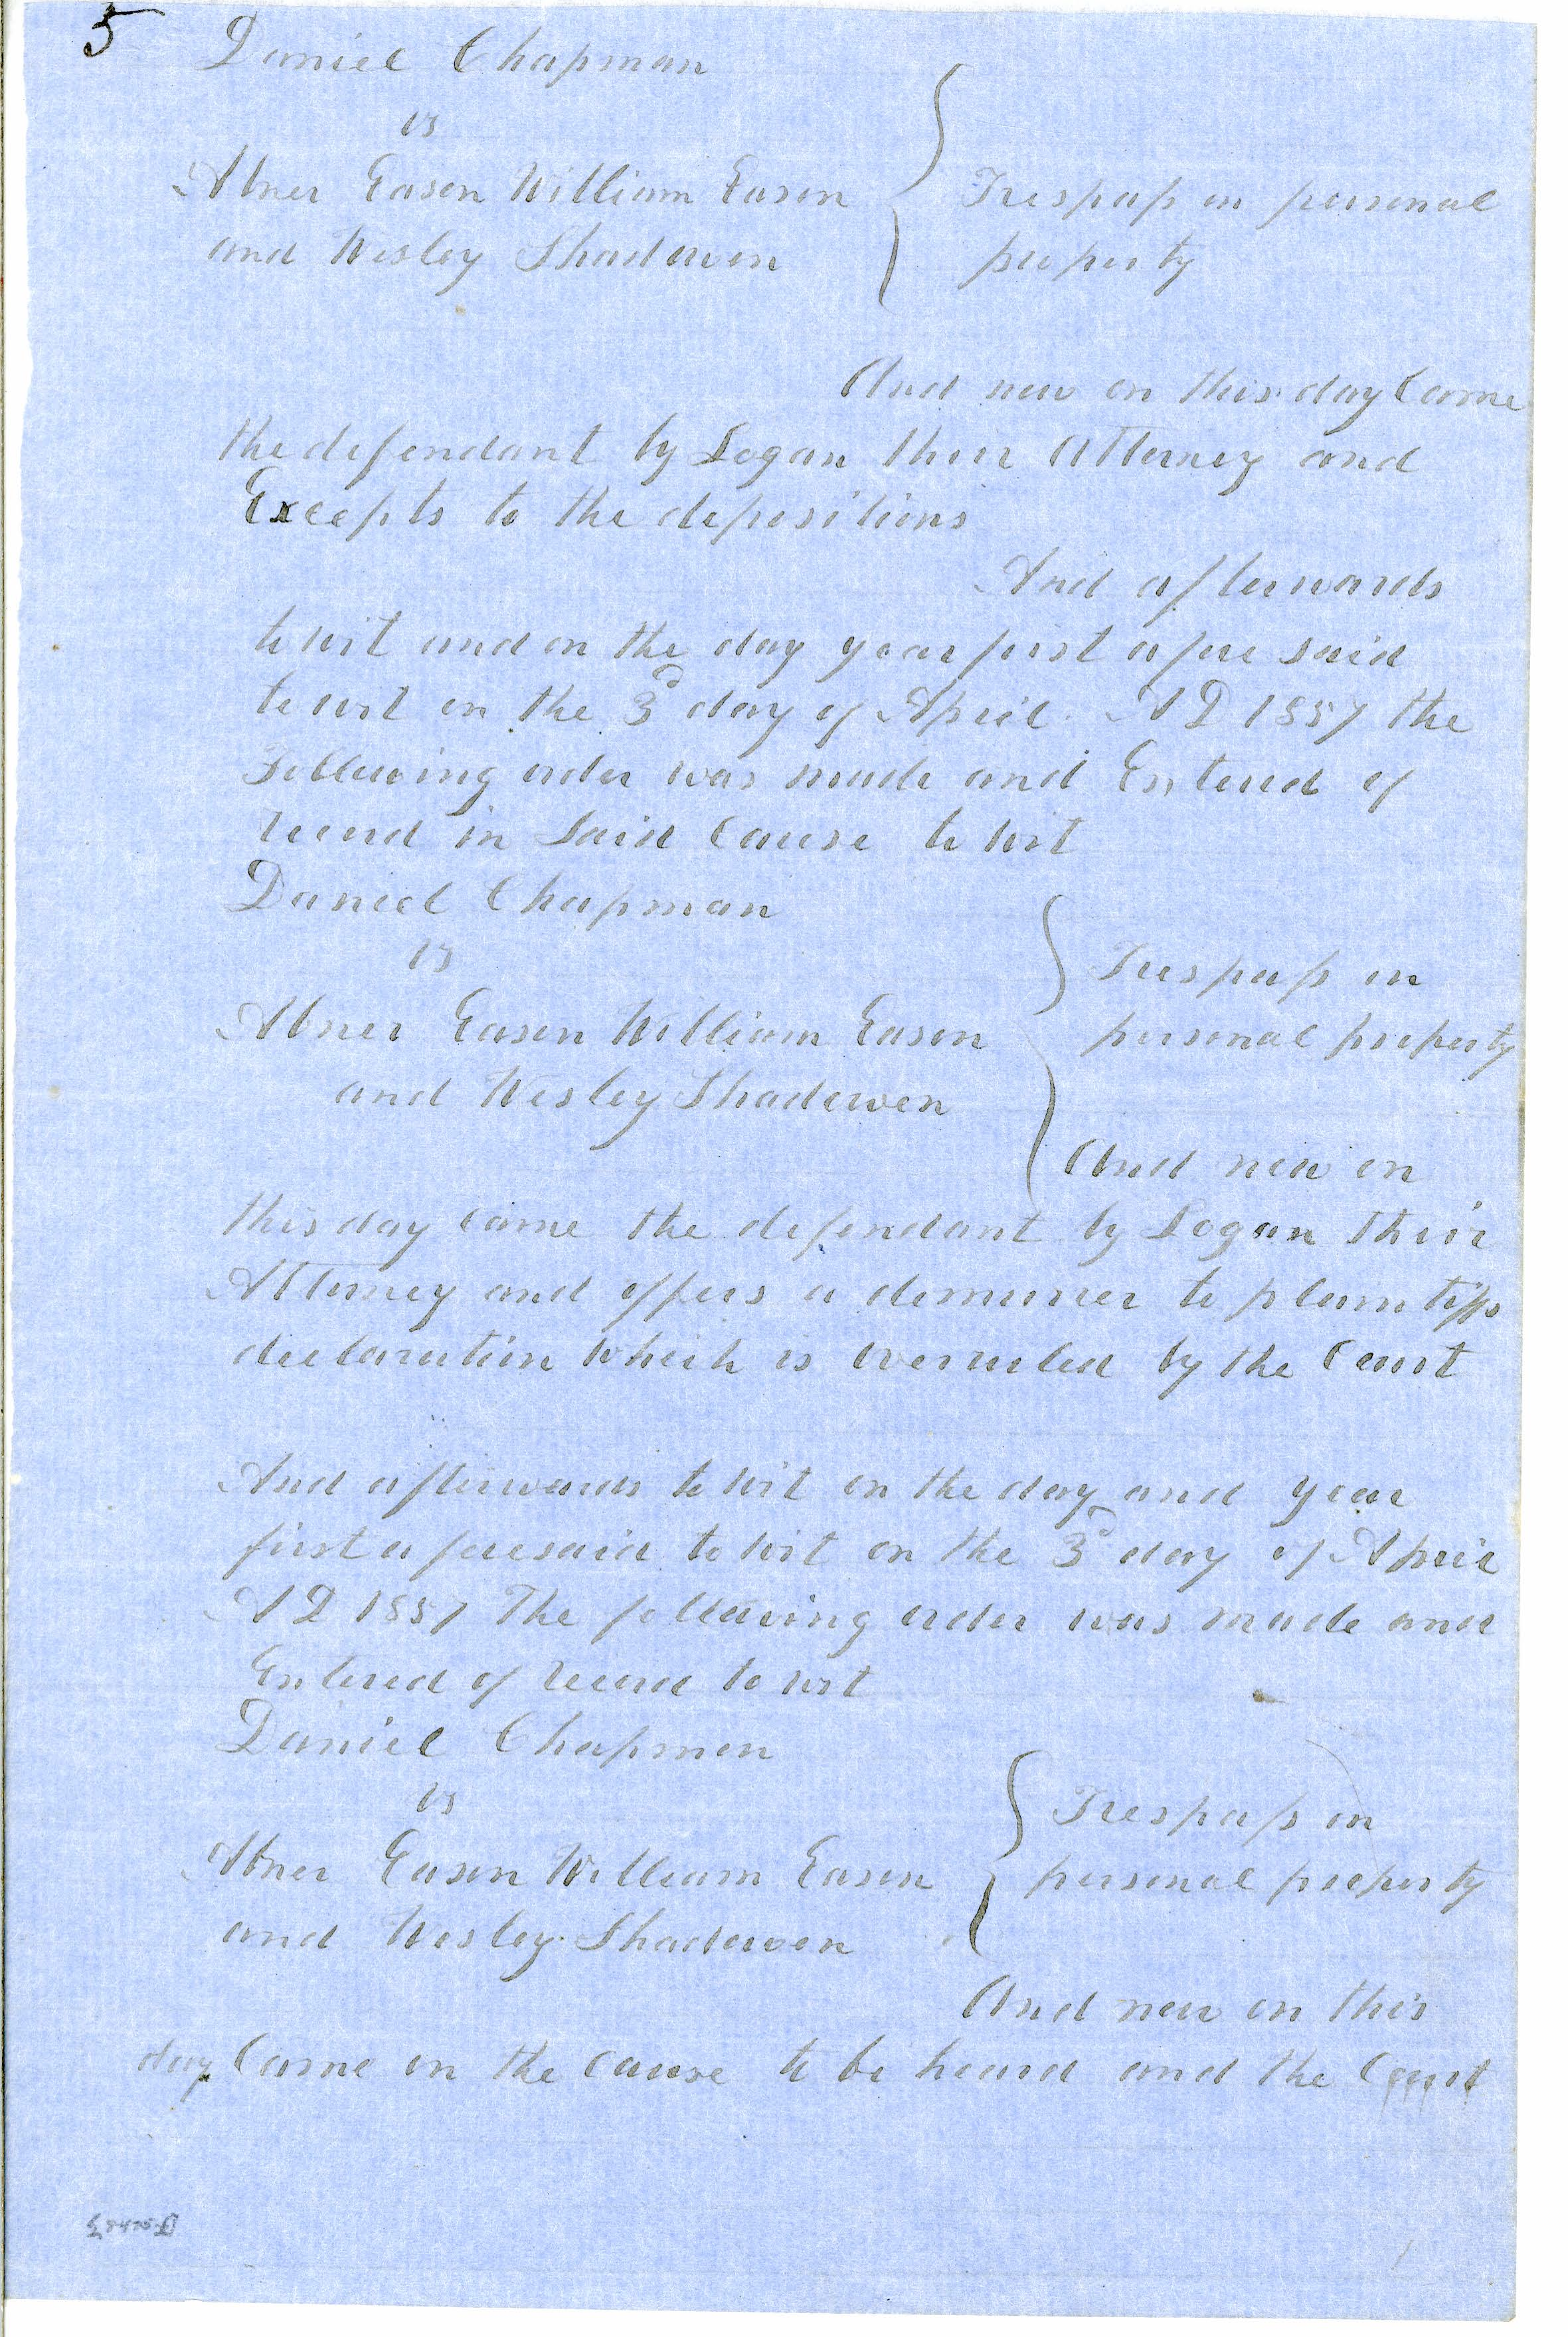 5 Daniel Chapman
vs
Abner Eason William Eason
and Wesley Shadowen
Trespass on personal
property
And now on this day Came
the defendant by Logan their Attorney and
Excepts to the depositions
And afterwards
to wit and on the day year first afore said
to wit on the 3d day of April AD 1857 the
Following order was made and Entered of
record in Said Cause to wit
Daniel Chapman
vs
Abner Eason William Eason
and Wesley Shadowen
Trespass on
personal property
And now on
this day came the defendant by Logan their
Attorney and offers a demurrer to plaintiffs
declaration which is overruled by the Court
And afterwards to wit on the day and year
first aforesaid to wit on the 3d day of April
AD 1857 The following order was made and
Entered of record to wit
Daniel Chapman
vs
Abner Eason William Eason
and Wesley Shadowen
Trespass on
personal property
And now on this
day Came on the cause to be heard and the Court